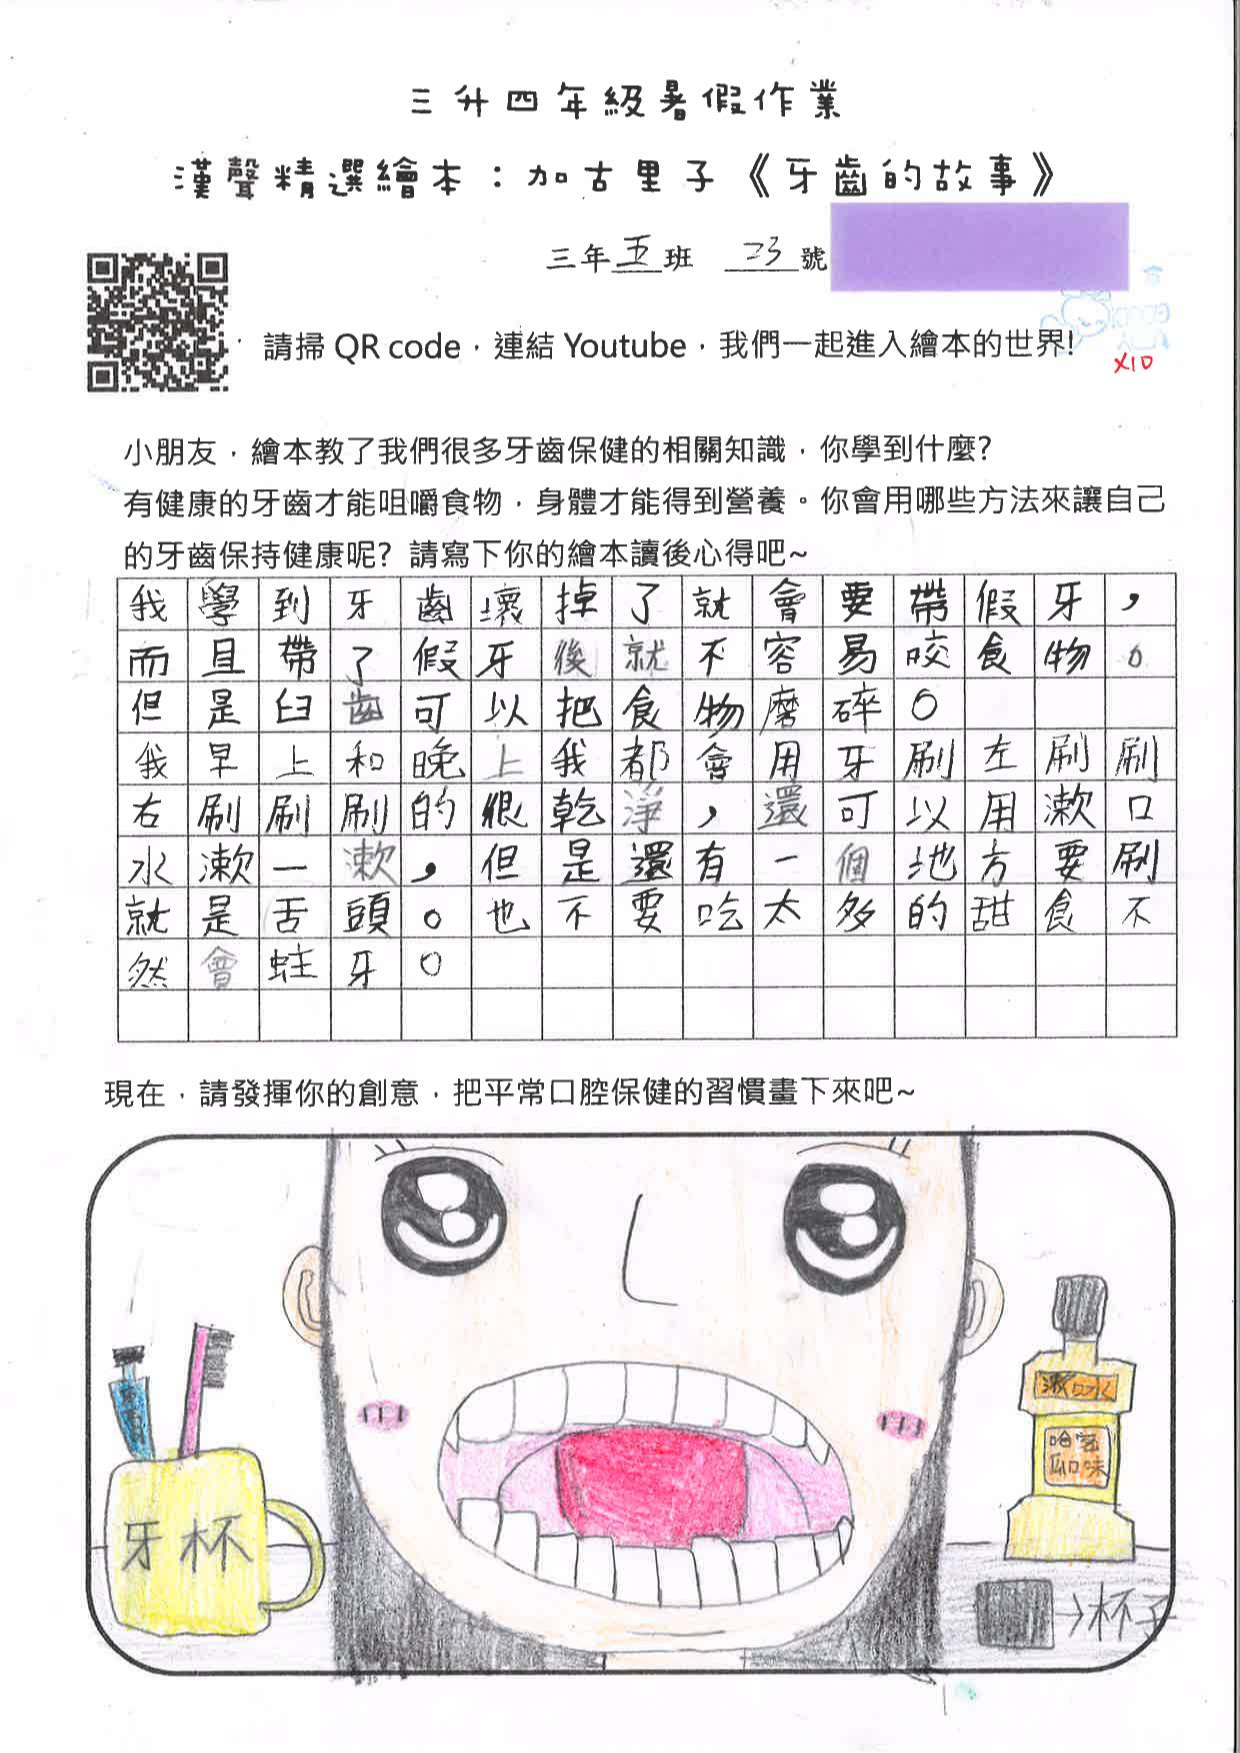 三升四年級暑假作業
漢聲精選繪本：加古里子《牙齒的故事》
三年五班 23號
請掃 QR code，連結 Youtube，我們一起進入繪本的世界!
X10
小朋友，繪本教了我們很多牙齒保健的相關知識，你學到什麼?
有健康的牙齒才能咀嚼食物，身體才能得到營養。你會用哪些方法來讓自己
的牙齒保持健康呢? 請寫下你的繪本讀後心得吧~
我學到牙齒壞掉了就會要帶假牙，
而且帶了假牙後就不容易咬食物。
但是臼齒可以把食物磨碎。
我早上和晚上我都會用牙刷左刷刷
右刷刷刷的很乾淨，還可以用漱口
水漱一漱，但是還有一個地方要刷
就是舌頭。也不要吃太多的甜食不
然會蛀牙。
現在，請發揮你的創意，把平常口腔保健的習慣畫下來吧~
牙杯
漱口水
哈密
瓜口味
→杯子